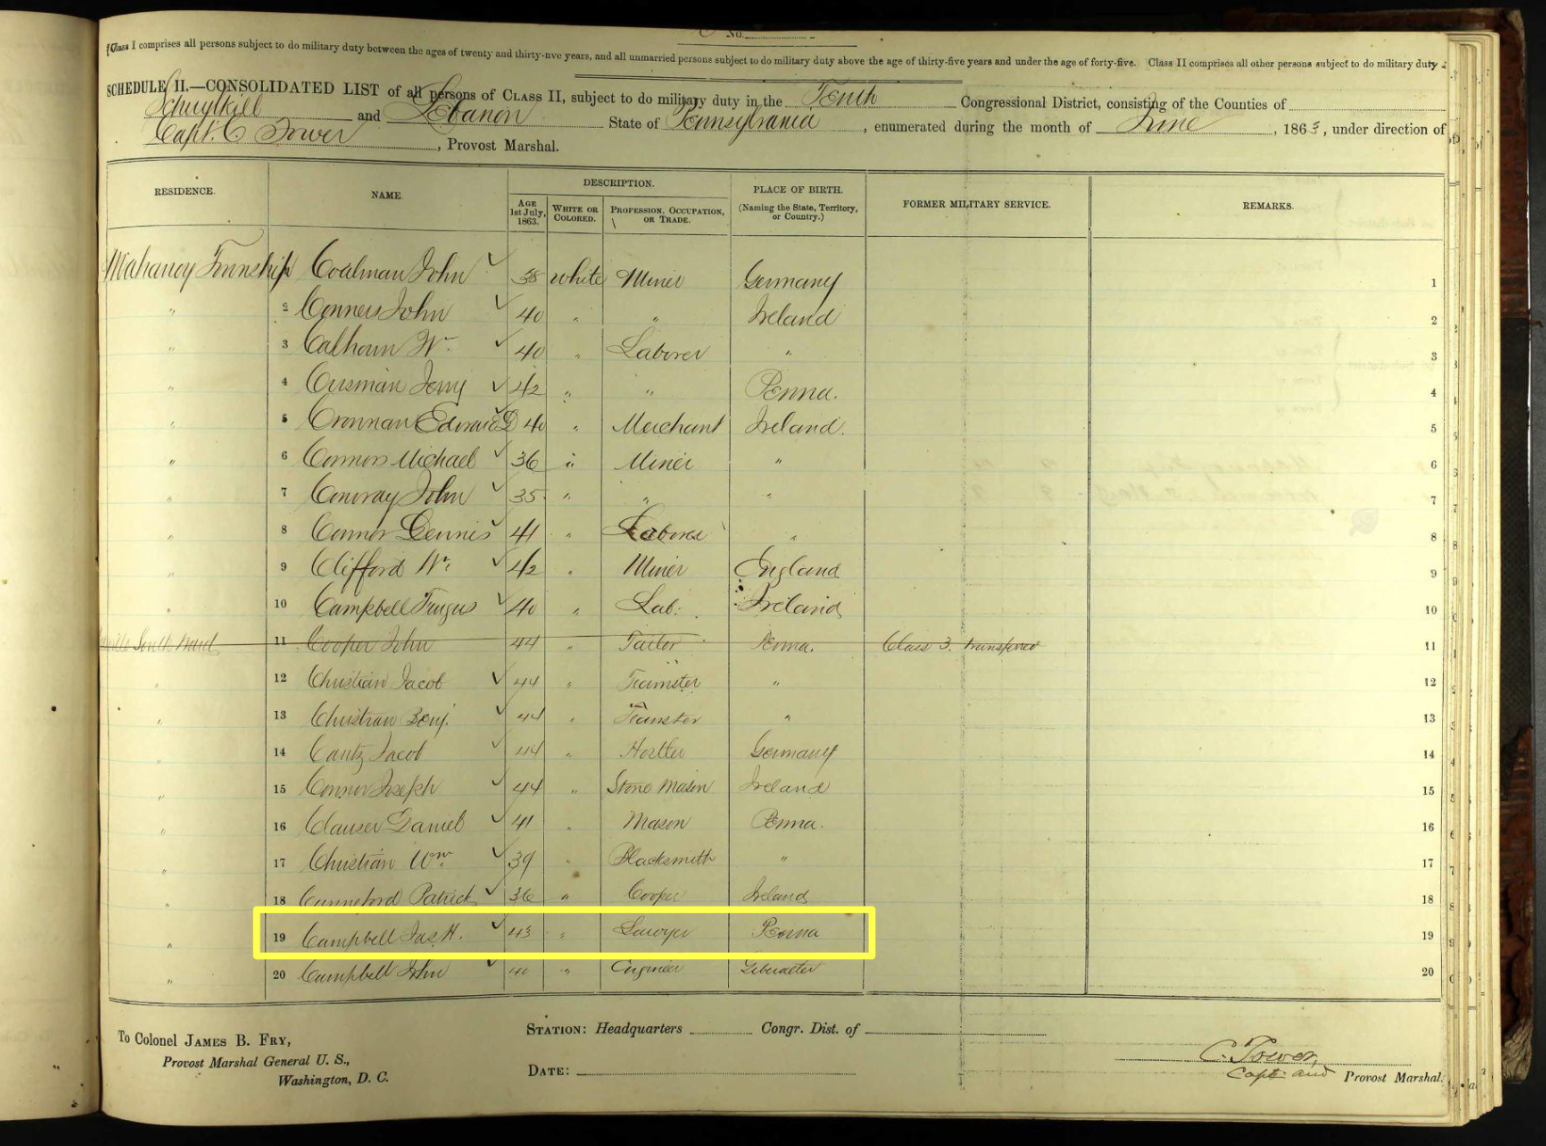 No.
Class I comprises all persons subject to do military duty between the ages of twenty and thirty-five years, and all unmarried persons subject to do military duty above the age of thirty-five years and under the age of forty-five. Class II comprises all other persons subject to do military duty.
SCHEDULE II.—CONSOLIDATED LIST of all persons of CLASS II, subject to do military duty in the Tenth Congressional District, consisting of the Counties of
Schuylkill and Lebanon State of Pennsylvania, enumerated during the month of June, 1863, under direction of
Capt. C Tower, Provost Marshal.
RESIDENCE. NAME. DESCRIPTION. PLACE OF BIRTH. (Naming the State, Territory, or Country.) FORMER MILITARY SERVICE. REMARKS.
AGE 1st July, 1863. WHITE OR COLORED. PROFESSION, OCCUPATION, OR TRADE.
Mahanoy Township Coalman John 38 White Miner Germany 1
" 2 Conners John 40 " " Ireland 2
" 3 Calhoun Wm 40 " Laborer " 3
" 4 Cusman Jerry 42 " " Penna. 4
" 5 Cronnan Edward D 40 " Merchant Ireland. 5
" 6 Connors Michael 36 " Miner " 6
" 7 Conway John 35 " " " 7
" 8 Connor Dennis 41 " Laborer " 8
" 9 Clifford Wm 42 " Miner England 9
" 10 Campbell Fergus 40 " Lab. Ireland 10
South Ward 11 Cooper John 44 " Tailor Penna. Class 3. transfered 11
12 Christian Jacob 44 " Teamster " 12
" 13 Christian Benj. 44 " Teamster " 13
" 14 Cantz Jacob 44 " Hostler Germany 14
" 15 Connor Joseph 44 " Stone Mason Ireland 15
" 16 Clauser Daniel 41 " Mason Penna. 16
" 17 Christian Wm 39 " Blacksmith " 17
" 18 Patrick 36 " Cooper Ireland 18
" 19 Campbell Jas. H. 43 " Lawyer Penna 19
" 20 Campbell John 40 " Engineer 20
To Colonel JAMES B. FRY,
Provost Marshal General U. S.,
Washington, D. C.
STATION: Headquarters Congr. Dist. of
DATE:
C. Tower,
Capt. and Provost Marshal.